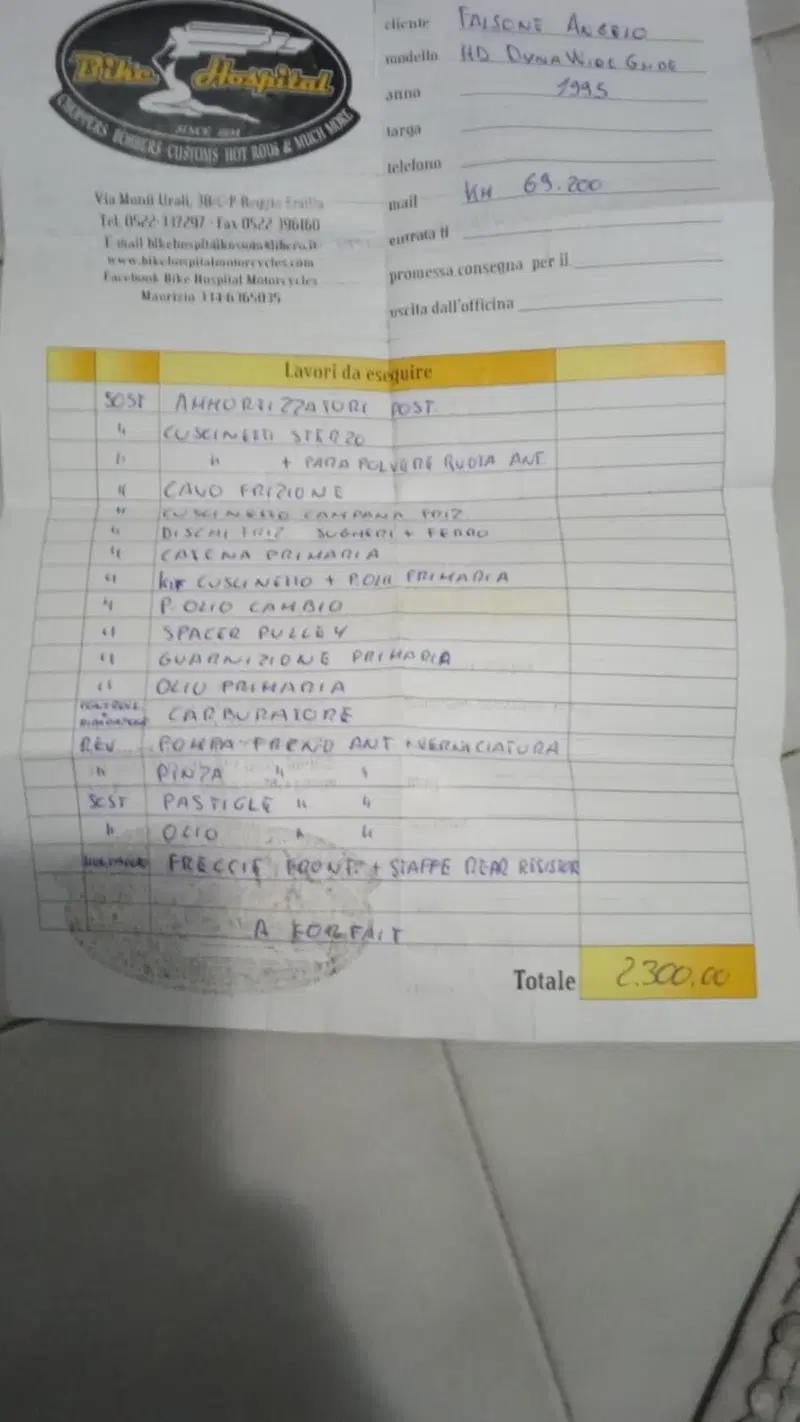 Bike Hospital
SINCE
CHOPPERS BOBBERS CUSTOMS HOT RODS & MUCH MORE
Via Monti Urali, Reggio Emilia
Tel. 0522 Fax 0522 396160
E mail
www.bikehospitalmotorcycles.com
Facebook Bike Hospital Motorcycles
Maurizio
cliente FALSONE ANGELO
modello HD DYNA WIDE GLIDE
anno 1995
targa
telefono
mail KM 69.200
entrata il
promessa consegna per il
uscita dall'officina
Lavori da eseguire
SOST AMMORTIZZATORI POST.
" CUSCINETTI STERZO
" " + PARAPOLVERE RUOTA ANT.
" CAVO FRIZIONE
" CUSCINETTO CAMPANA FRIZ.
" DISCHI FRIZ SUGHERI + FERRO
" CATENA PRIMARIA
" KIT CUSCINETTO + P.OLIO PRIMARIA
" P. OLIO CAMBIO
" SPACER PULLEY
" GUARNIZIONE PRIMARIA
" OLIO PRIMARIA
CARBURATORE
REV. POMPA FRENO ANT + VERNICIATURA
" PINZA " "
SOST PASTIGLE " "
" OLIO " "
FRECCIE FRONT. + STAFFE REAR RESISTOR
A FORFAIT
Totale 2.300,00